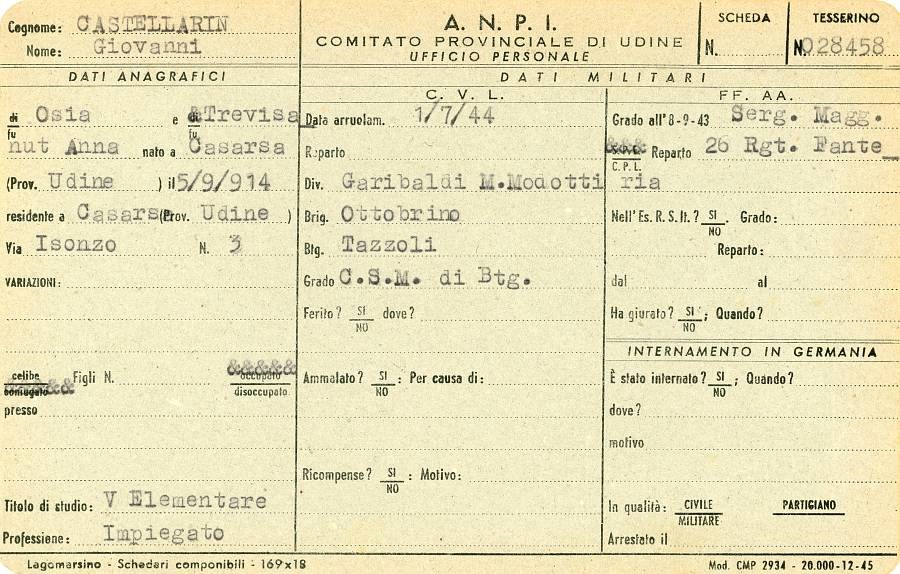 Cognome: CASTELLARIN
Nome: Giovanni
A. N. P. I.
COMITATO PROVINCIALE DI UDINE
UFFICIO PERSONALE
SCHEDA
N.
TESSERINO
N. 028458
DATI ANAGRAFICI
di Osia e di Trevisa_
fu fu
nut Anna nato a Casarsa
(Prov. Udine ) il 5/9/914
residente a Casarsa (Prov. Udine )
Via Isonzo N. 3
VARIAZIONI:
celibe Figli N. &&&&& occupato
coniugato &&&&& disoccupato
presso
Titolo di studio: V Elementare
Professione: Impiegato
DATI MILITARI
C. V. L.
Data arruolam. 1/7/44
Reparto
Div. Garibaldi M.Modotti
Brig. Ottobrino
Btg. Tazzoli
Grado C.S.M. di Btg.
Ferito? SI dove?
NO
Ammalato? SI : Per causa di:
NO
Ricompense? SI : Motivo:
NO
FF. AA.
Grado all'8-9-43 Serg. Magg.
&&& Reparto 26 Rgt. Fante_
C.P.L.
ria
Nell'Es. R. S. It.? SI . Grado:
NO
Reparto:
dal al
Ha giurato? SI ; Quando?
NO
INTERNAMENTO IN GERMANIA
È stato internato? SI ; Quando?
NO
dove?
motivo
In qualità: CIVILE PARTIGIANO
MILITARE
Arrestato il
Lagomarsino - Schedari componibili - 169x18
Mod. CMP 2934 - 20.000-12-45